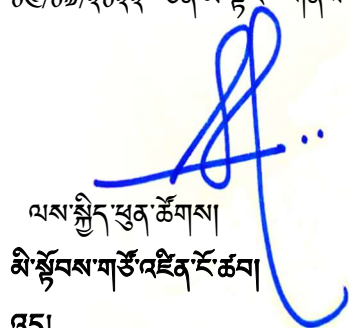 ལས་སྐྱིད་ཕུན་ཚོགས།
མི་སྟོབས་གཙོ་འཛིན་ངོ་ཚབ།
འད།